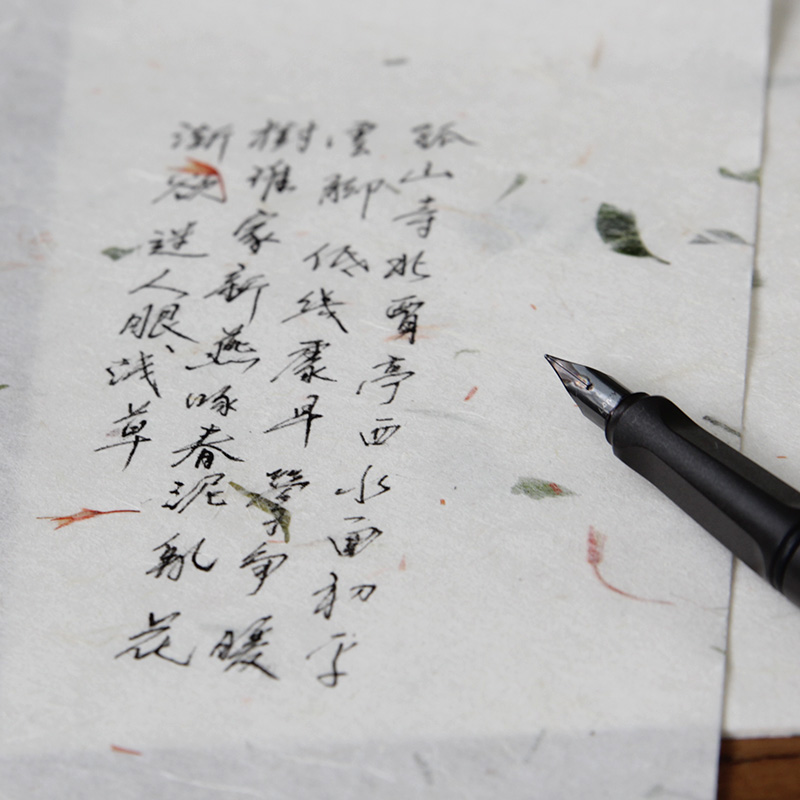 孤山寺北賈亭西水面初平
雲脚低幾處早鶯争暖
樹誰家新燕啄春泥亂花
漸欲迷人眼浅草